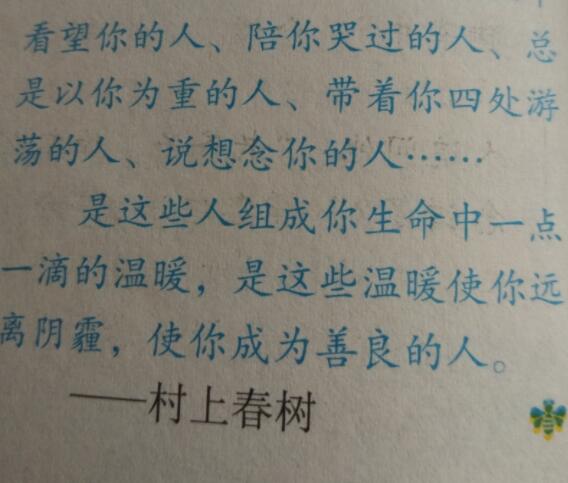 看望你的人、陪你哭过的人、总
是以你为重的人、带着你四处游
荡的人、说想念你的人……
是这些人组成你生命中一点
一滴的温暖，是这些温暖使你远
离阴霾，使你成为善良的人。
——村上春树